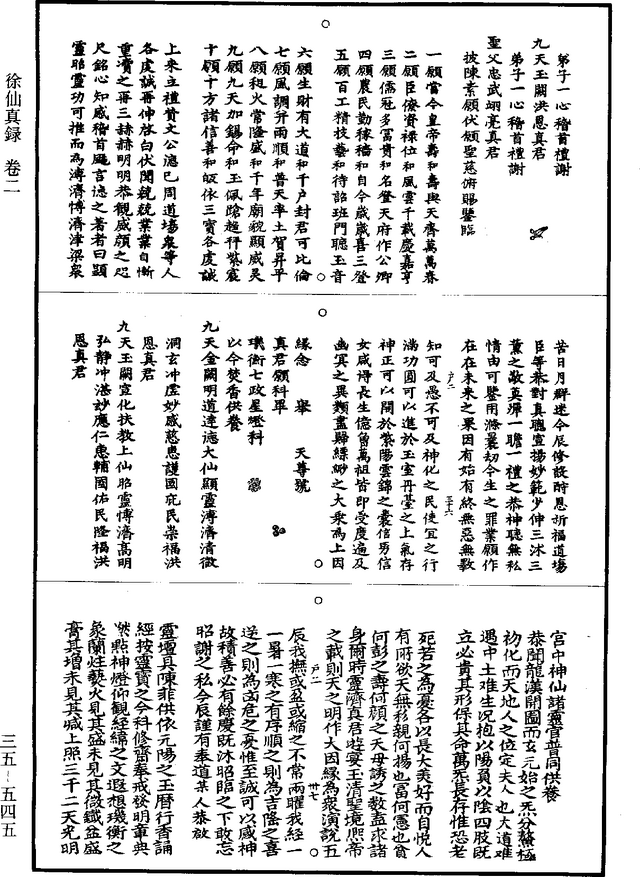 徐仙真録 卷二
弟子一心稽首禮謝
九天玉闕洪恩真君
弟子一心稽首禮謝
聖父忠武翊亮真君
披陳素願伏願聖慈俯賜鑒臨
一願當今皇帝壽和壽與天齊萬萬春
二願臣僚資祿位和風雲千載慶嘉亨
三願儒冠多富貴和名登天府作公卿
四願農民勤稼穡和自今歲歲喜三登
五願百工精技藝和待詔班門聽玉音
六願生財有大道和千户封君可比倫
七願風調并雨順和普天率土賀昇平
八願香火常隆盛和千年廟貌顯威灵
九願九天加錫命和玉佩蹌趨拜紫宸
十願十方諸信善和皈依三寶各虔誠
上來立禮贊文公德已周道塲衆等人
各虔誠再伸啓白伏聞兢兢業業自慚
重瀆之再三赫赫明明恭觀威顔之咫
尺銘心知感稽首颺言德之著者曰顯
靈昭靈功可推而為溥濟博濟津梁衆
苦日月群迷今辰修設酧恩祈福道塲
臣等恭對真聰宣揚妙範少伸三沐三
薰之敬莫殫一瞻一禮之恭神聽無私
情由可鑒用滌曩劫今生之罪業願作
在在未來之果因有始有終無惡無斁
户二 三十六
知可及愚不可及神化之民使宜之行
滿功圓可以進於玉室丹臺之上氣存
神正可以閱於紫陽雲錦之囊信男信
女咸得長生億曾萬祖皆即受度遍及
幽冥之異類盡歸縹緲之大乘爲上因
緣念 舉 天尊號
真君願科畢
璣衡七政星燈科
以今焚香供養
九天金闕明道達德大仙顯靈溥濟清微
洞玄冲虛妙感慈惠護國庇民崇福洪
恩真君
九天玉闕宣化扶教上仙昭靈博濟高明
弘静冲湛妙應仁惠輔國佑民隆福洪
恩真君
宫中神仙諸靈官普同供養
恭聞龍漢開圖而玄元始之炁分鰲極
初化而天地人之位定夫人也大道難
遇中土難生况抱以陽負以陰四肢既
立必貴其形保其命萬死長存惟恐老
死若之為憂各以長大美好而自悦人
有所欲天無私親何揚也富何憲也貧
何彭之壽何顔之夭母誘之數盍求諸
身爾時靈濟真君遊宴玉清聖境熙帝
之載則天之明作大因緣為衆演說五
户二 卅七
辰我撫或盈或縮之不常兩曜我經一
一暑一寒之有序順之則為吉隆之喜
逆之則為凶危之憂惟至誠可以感神
故積善必有餘慶既沐昭臨之下敢忘
昭謝之私今辰謹有奉道某人恭啟
靈壇具陳菲供依元陽之玉曆行香誦
經按靈寶之令科修齋奉戒發明章典
燃點神燈仰觀經緯之文遐想璣衡之
象蘭炷蓺火見其盛未見其微鐵盆盛
膏其增未見其減上照三千二天光明
三五～五四五